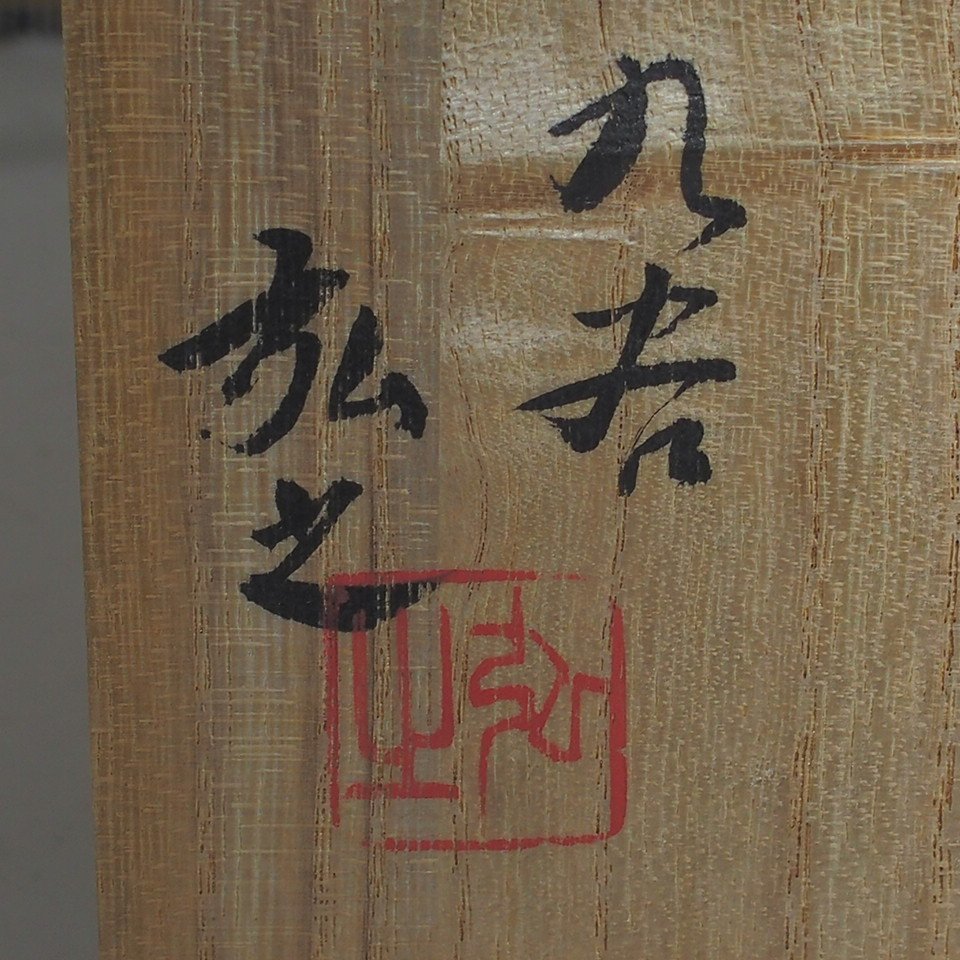 九谷
弘之
弘之